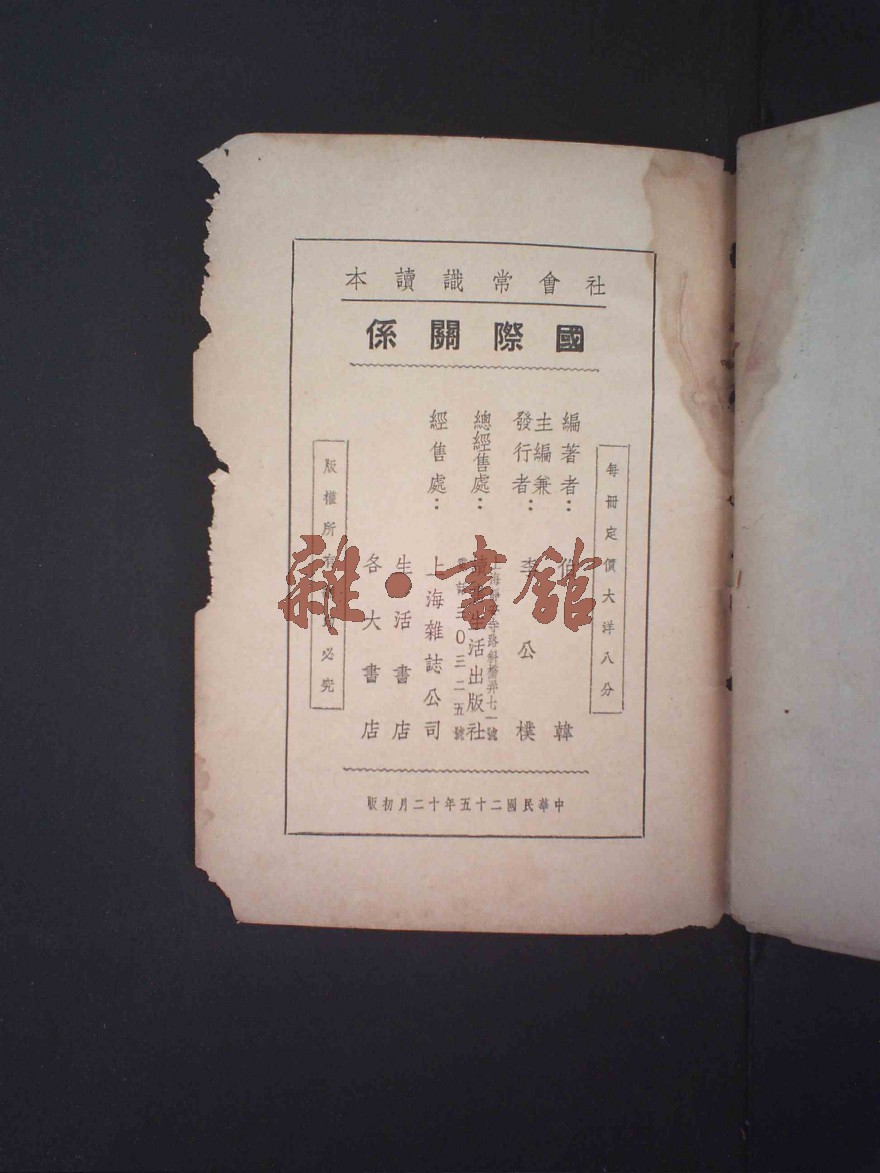 社會常識讀本
國際關係
每冊定價大洋八分
編著者：伯韓
主編兼
發行者：李公樸
上海靜安寺路斜橋弄七一號
總經售處：讀書生活出版社
電話三〇三二五號
經售處：上海雜誌公司
生活書店
各大書店
版權所有必究
中華民國二十五年十二月初版
雜·書館